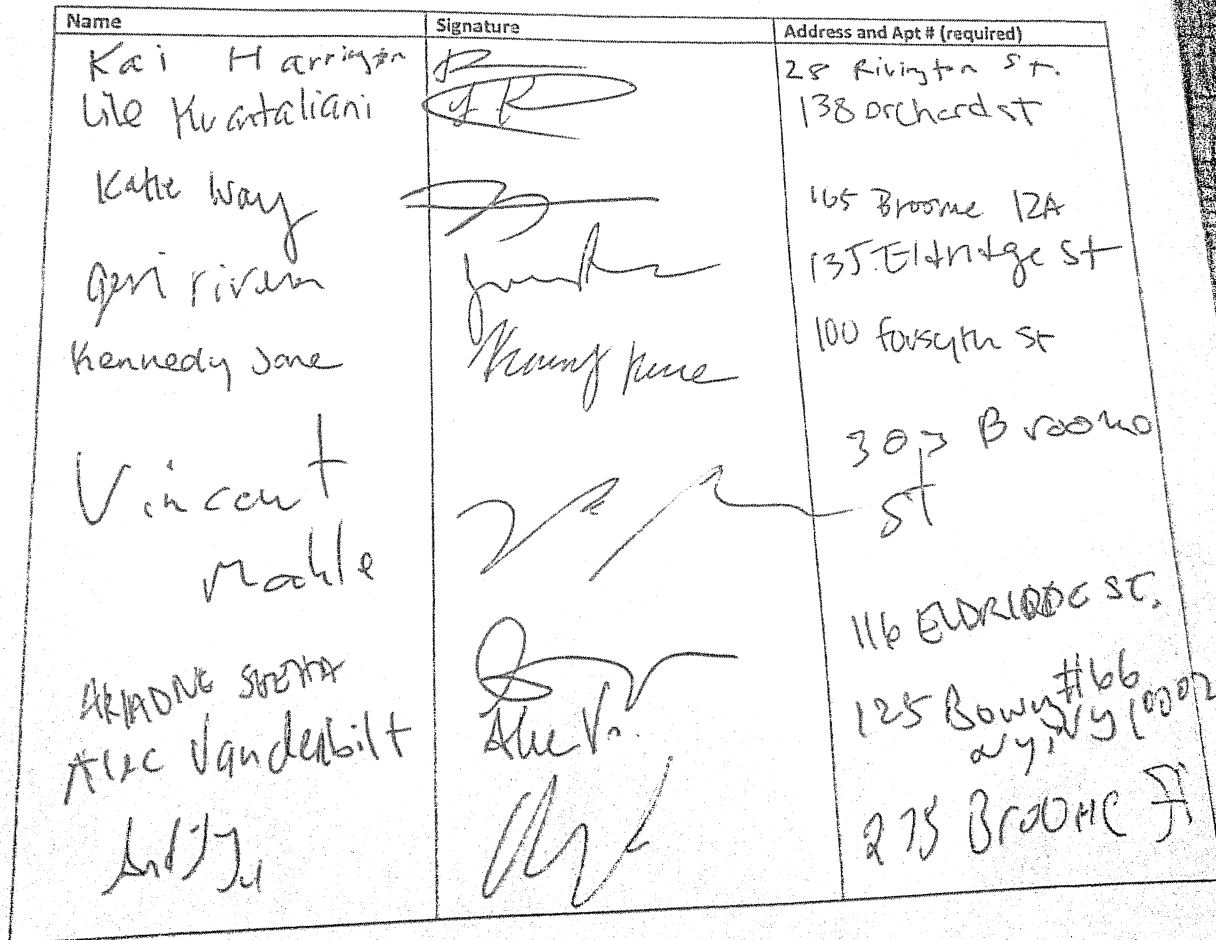 Name Signature Address and Apt # (required)
Kai Harrington 28 Rivington St.
Lile Kvantaliani 138 orchard st
Katie Way 165 Broome 12A
geri rivera 135 Eldridge st
Kennedy Jane 100 forsyth st
Vincent 303 Broome
Mahle st
ARIADNE 116 ELDRIDGE ST.
Alec Vanderbilt Alec V. 125 Bowery #66
NY, NY 10002
275 BROOME St